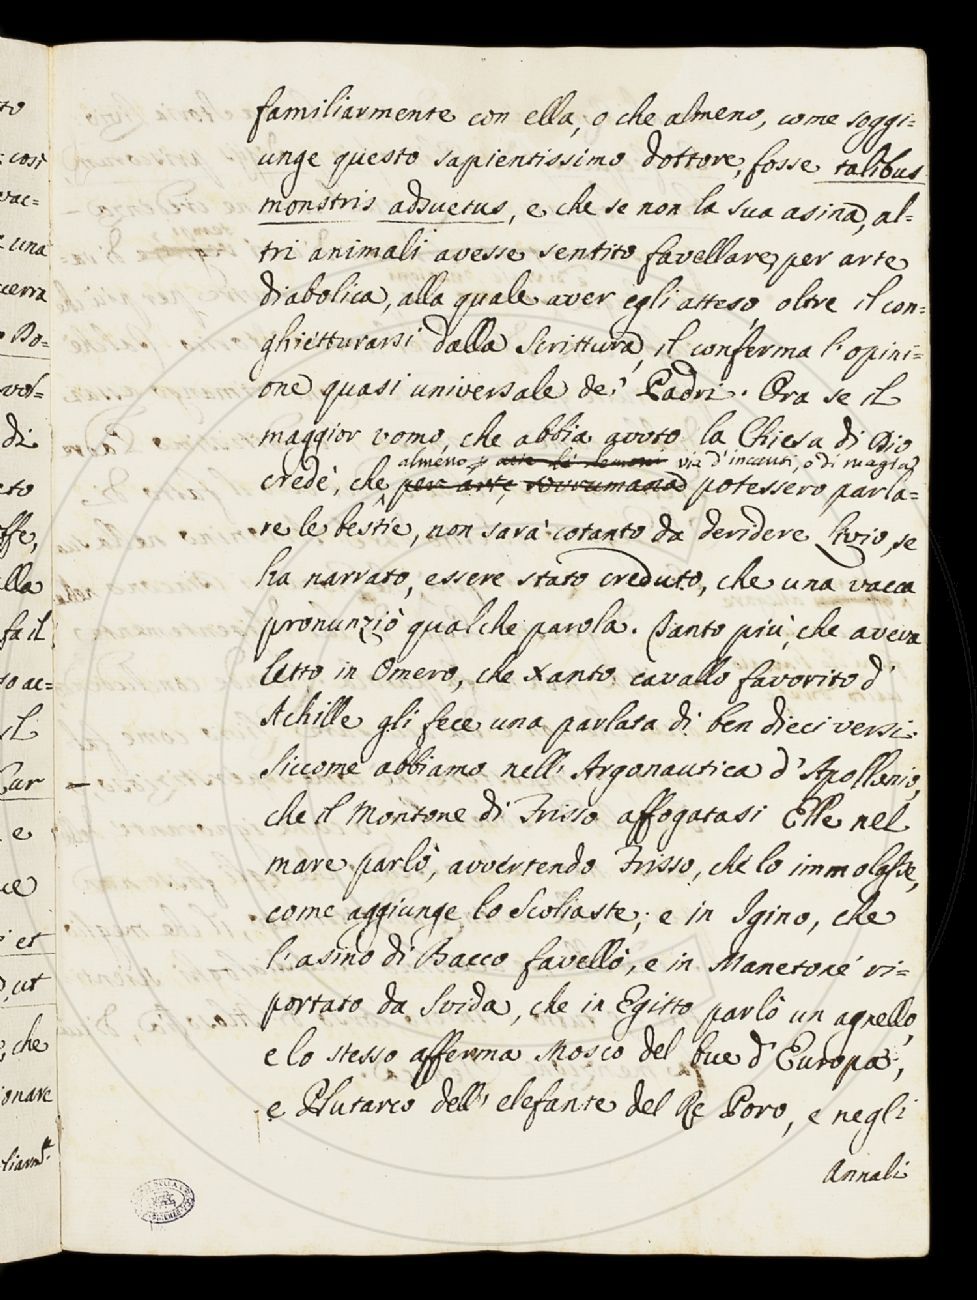 familiarmente con ella, o che almeno, come soggi=
unge questo sapientissimo dottore, fosse talibus
monstris adsuetus, e che se non la sua asina, al=
tri animali avesse sentito favellare, per arte
diabolica, alla quale aver egli atteso, oltre il con=
ghietturarsi dalla Scrittura, il conferma l'opini=
one quasi universale de' Padri. Ora se il
maggior uomo, che abbia avuto la Chiesa di Dio
almeno p arte de' demoni via d'incanti, o di magia
crede, che per arte sovrumana potessero parla=
re le bestie, non sarà cotanto da deridere Livio, se
ha narrato, essere stato creduto, che una vacca
pronunziò qualche parola. Tanto più, che aveva
letto in Omero, che Xanto cavallo favorito d'
Achille gli fece una parlata di ben dieci versi.
Siccome abbiamo nell' Argonautica d' Apollonio,
che il Montone di Frisso affogatasi Elle nel
mare parlò, avvertendo Frisso, che lo immolasse,
come aggiunge lo Scoliaste; e in Igino, che
l'asino di Bacco favellò, e in Manetone ri=
portato da Svida, che in Egitto parlò un agnello,
e lo stesso afferma Mosco del bue d' Europa;
e Plutarco dell' elefante del Re Poro, e negli
Annali
to
così
una
uerra
Bo=
vol=
di
eto
offe,
lla
fa il
so ac=
il
Cur
e
i et
, ut
, che
ionare
liarm.te